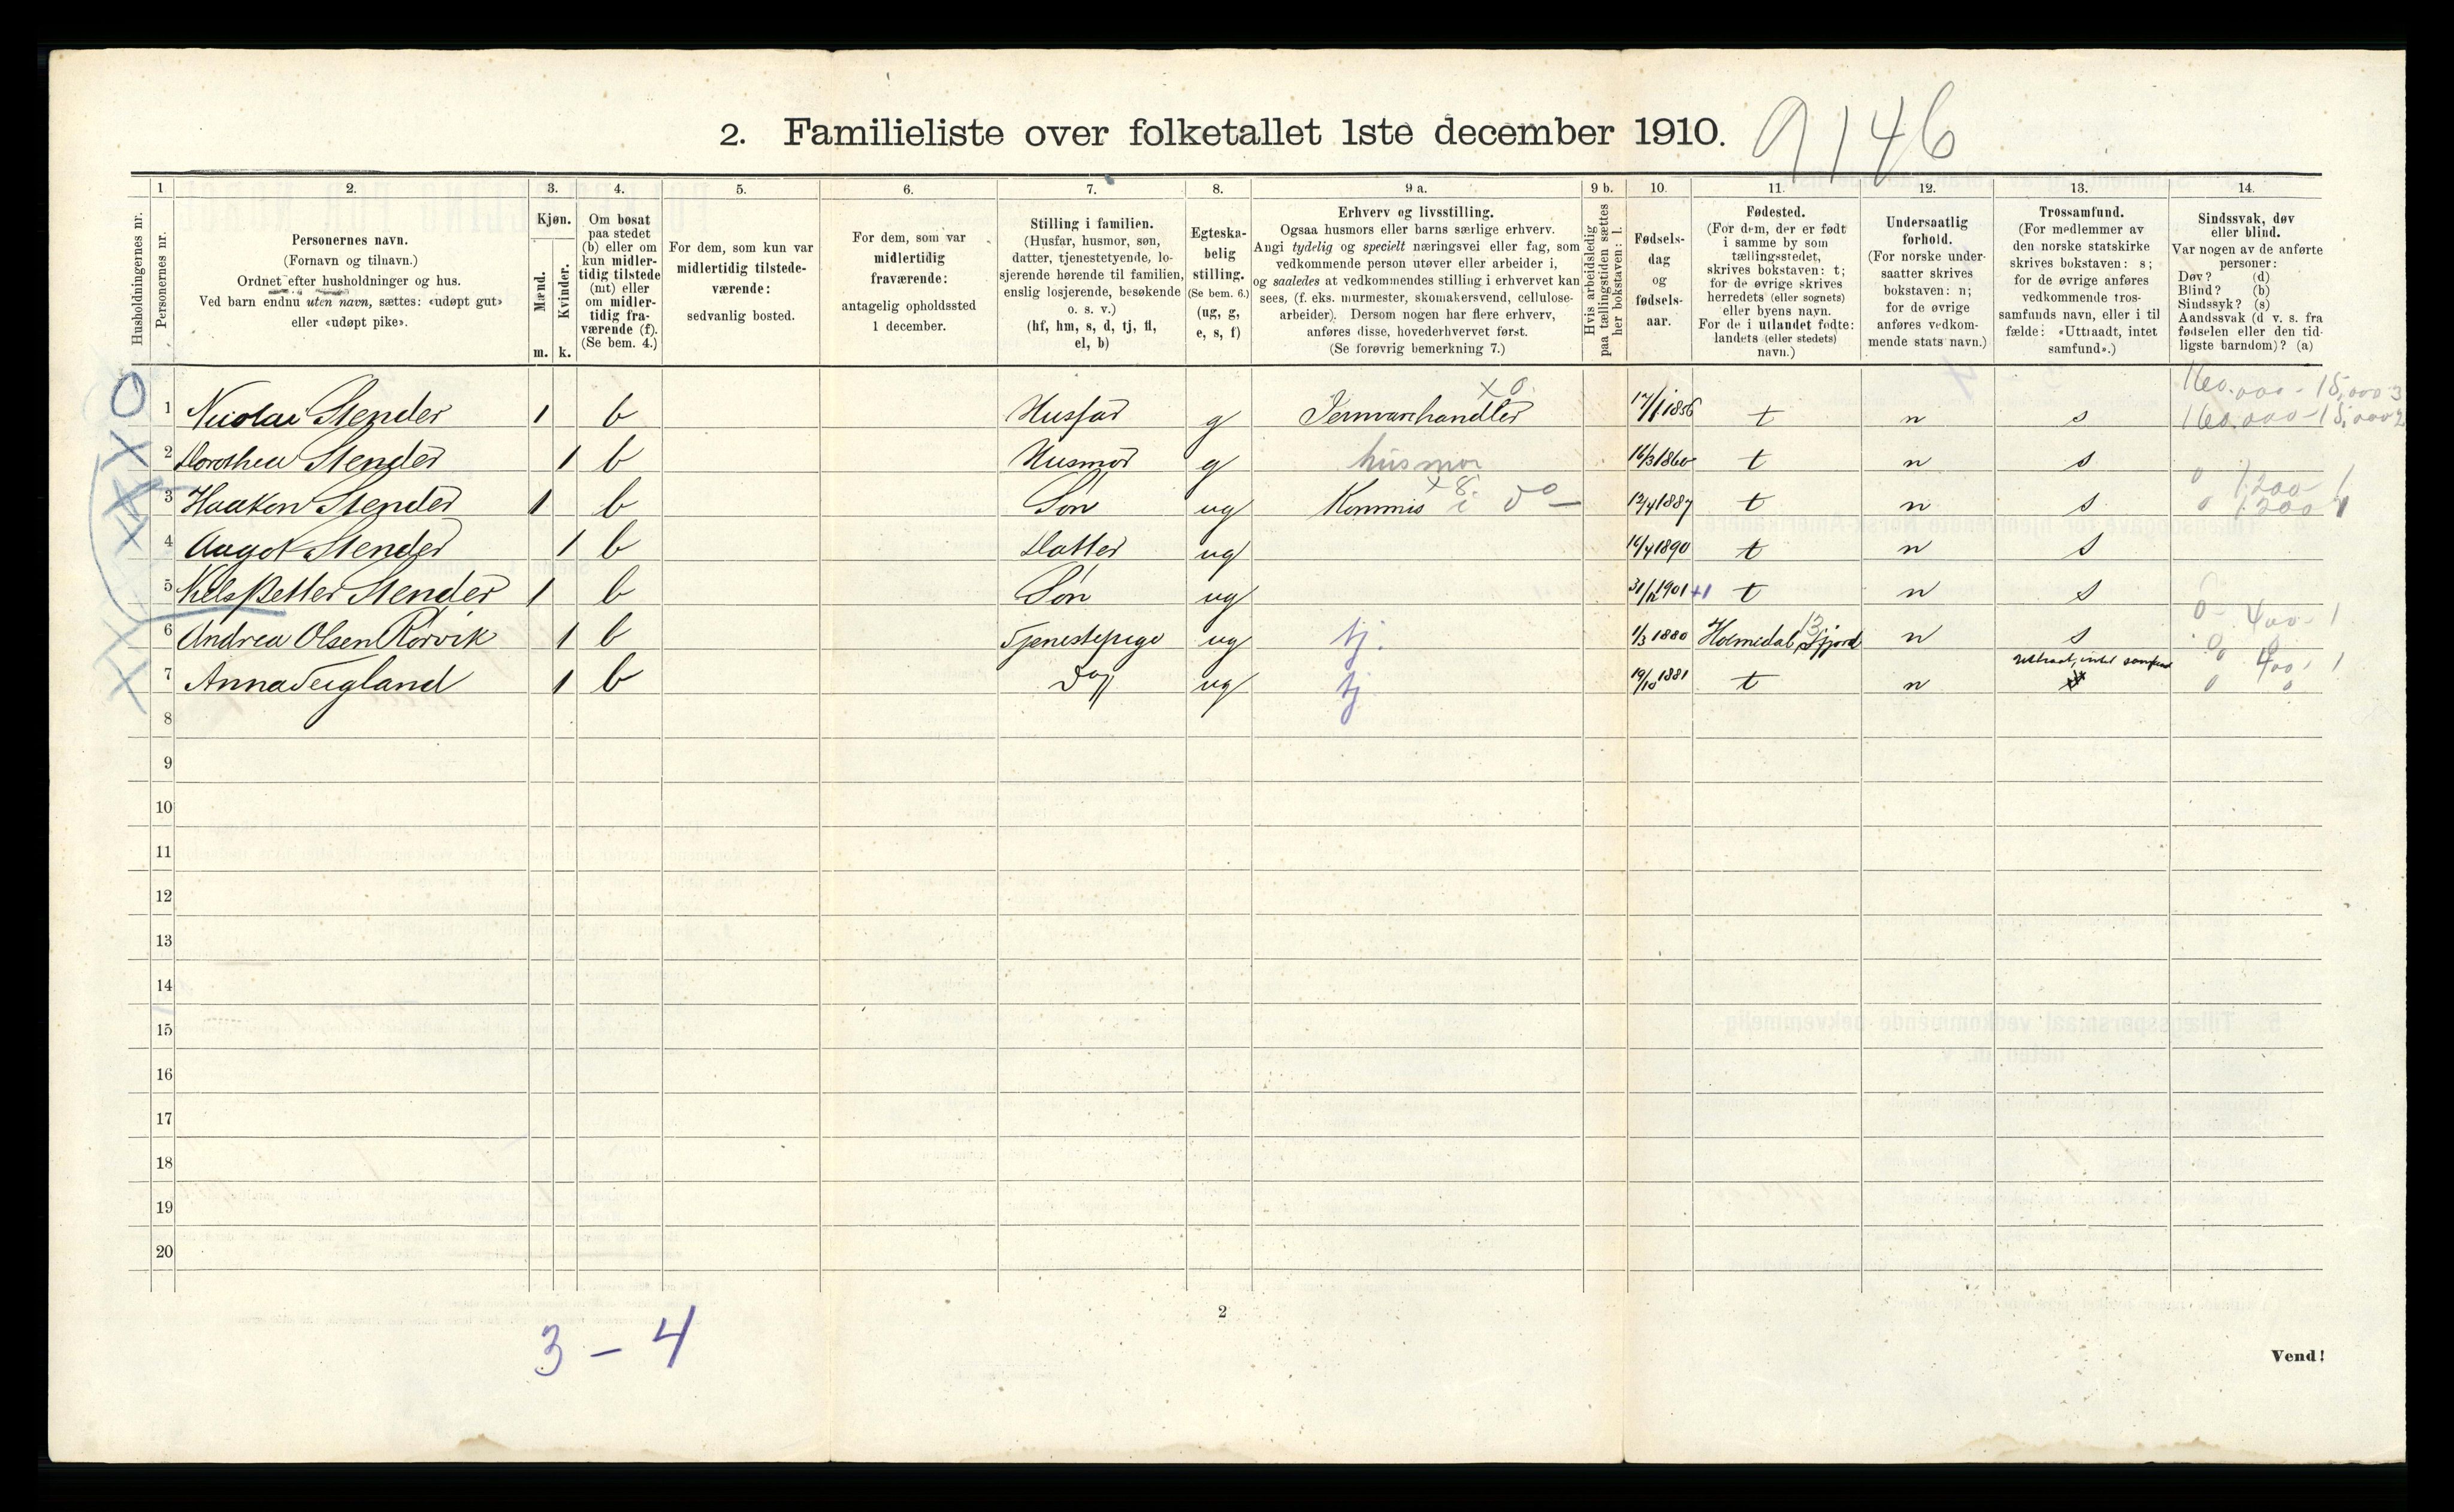 2. Familieliste over folketallet 1ste december 1910. 9146
Husholdningernes nr.
1
Personernes nr.
2.
Personernes navn.
(Fornavn og tilnavn.)
Ordnet efter husholdninger og hus.
Ved barn endnu uten navn, sættes: «udøpt gut»
eller «udøpt pike».
3.
Kjøn.
Mænd.
Kvinder.
m. k.
4.
Om bosat
paa stedet
(b) eller om
kun midler-
tidig tilstede
(mt) eller
om midler-
tidig fra-
værende (f).
(Se bem. 4.)
5.
For dem, som kun var
midlertidig tilstede-
værende:
sedvanlig bosted.
6.
For dem, som var
midlertidig
fraværende:
antagelig opholdssted
1 december.
7.
Stilling i familien.
(Husfar, husmor, søn,
datter, tjenestetyende, lo-
sjerende hørende til familien,
enslig losjerende, besøkende
o. s. v.)
(hf, hm, s, d, tj, fl,
el, b)
8.
Egteska-
belig
stilling.
(Se bem. 6.)
(ug, g,
e, s, f)
9 a.
Erhverv og livsstilling.
Ogsaa husmors eller barns særlige erhverv.
Angi tydelig og specielt næringsvei eller fag, som
vedkommende person utøver eller arbeider i,
og saaledes at vedkommendes stilling i erhvervet kan
sees, (f. eks. murmester, skomakersvend, cellulose-
arbeider). Dersom nogen har flere erhverv,
anføres disse, hovederhvervet først.
(Se forøvrig bemerkning 7.)
9 b.
Hvis arbeidsledig
paa tællingstiden sættes
her bokstaven: l.
10.
Fødsels-
dag
og
fødsels-
aar.
11.
Fødested.
(For dem, der er født
i samme by som
tællingsstedet,
skrives bokstaven: t;
for de øvrige skrives
herredets (eller sognets)
eller byens navn.
For de i utlandet fødte:
landets (eller stedets)
navn.)
12.
Undersaatlig
forhold.
(For norske under-
saatter skrives
bokstaven: n;
for de øvrige
anføres vedkom-
mende stats navn.)
13.
Trossamfund.
(For medlemmer av
den norske statskirke
skrives bokstaven: s;
for de øvrige anføres
vedkommende tros-
samfunds navn, eller i til
fælde: «Uttraadt, intet
samfund».)
14.
Sindssvak, døv
eller blind.
Var nogen av de anførte
personer:
Døv? (d)
Blind? (b)
Sindssyk? (s)
Aandssvak (d v. s. fra
fødselen eller den tid-
ligste barndom)? (a)
1 Nicolai Stender 1 b Husfar g Jernvarehandler x 0. 17/1 1856 t n s 160.000 - 15,000 3
160.000 - 15,000 2
2 Dorothea Stender 1 b Husmor g husmor 16/3 1860 t n s
3 Haakon Stender 1 b Søn ug Kommis i do - x 8. 12/4 1887 t n s 0 1,200 1
0 1,200 1
4 Aagot Stender 1 b Datter ug 16/4 1890 t n s
5 Nils Petter Stender 1 b Søn ug 31/12 1901 +1 t n s
6 Andrea Olsen Rørvik 1 b Tjenestepige ug tj. 1/3 1880 Holmedal Sfjord 13 n s 0 400 - 1
7 Anna Teigland 1 b Do ug tj 19/10 1881 t n Uttraadt, intet samfund 400 1
8
9
10
11
12
13
14
15
16
17
18
19
20
2
3 - 4
Vend!